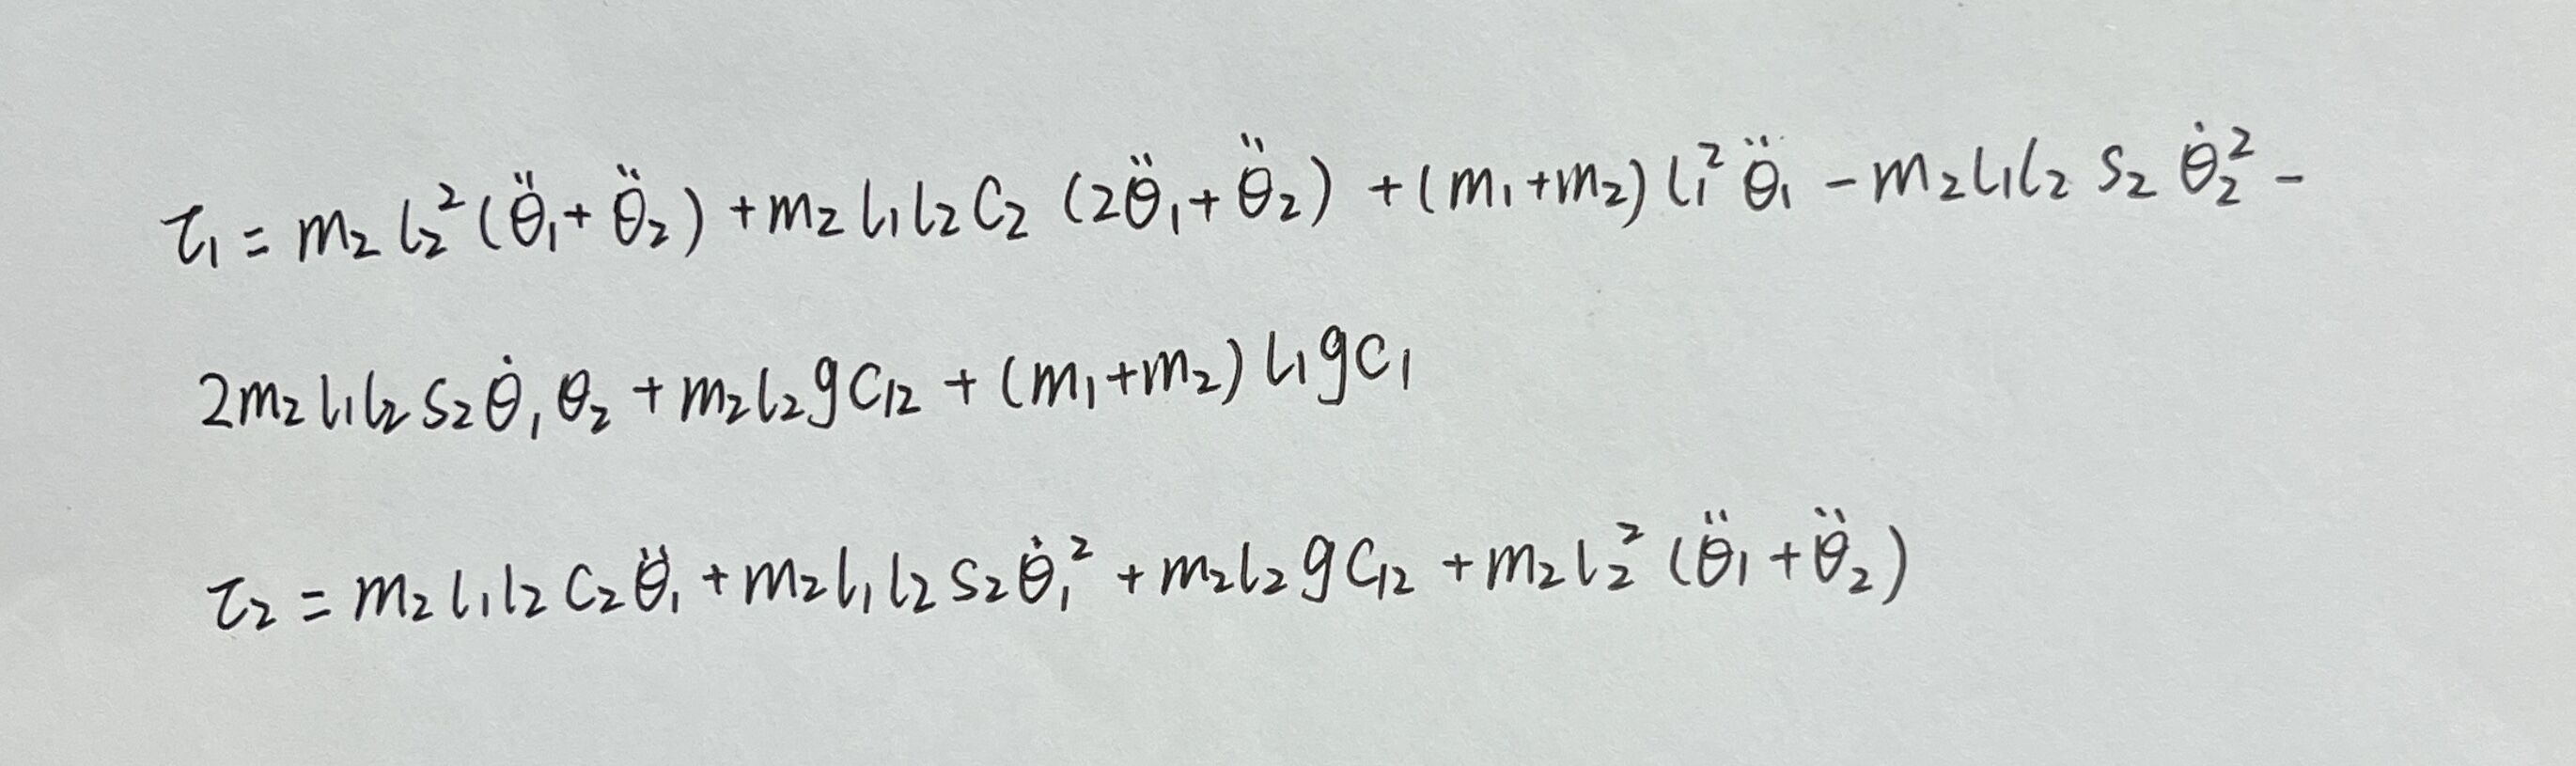 τ₁ = m₂ l₂² (θ̈₁ + θ̈₂) + m₂ l₁ l₂ c₂ (2θ̈₁ + θ̈₂) + (m₁ + m₂) l₁² θ̈₁ − m₂ l₁ l₂ s₂ θ̇₂² −
2m₂ l₁ l₂ s₂ θ̇₁ θ₂ + m₂ l₂ g c₁₂ + (m₁ + m₂) l₁ g c₁
τ₂ = m₂ l₁ l₂ c₂ θ̈₁ + m₂ l₁ l₂ s₂ θ̇₁² + m₂ l₂ g c₁₂ + m₂ l₂² (θ̈₁ + θ̈₂)